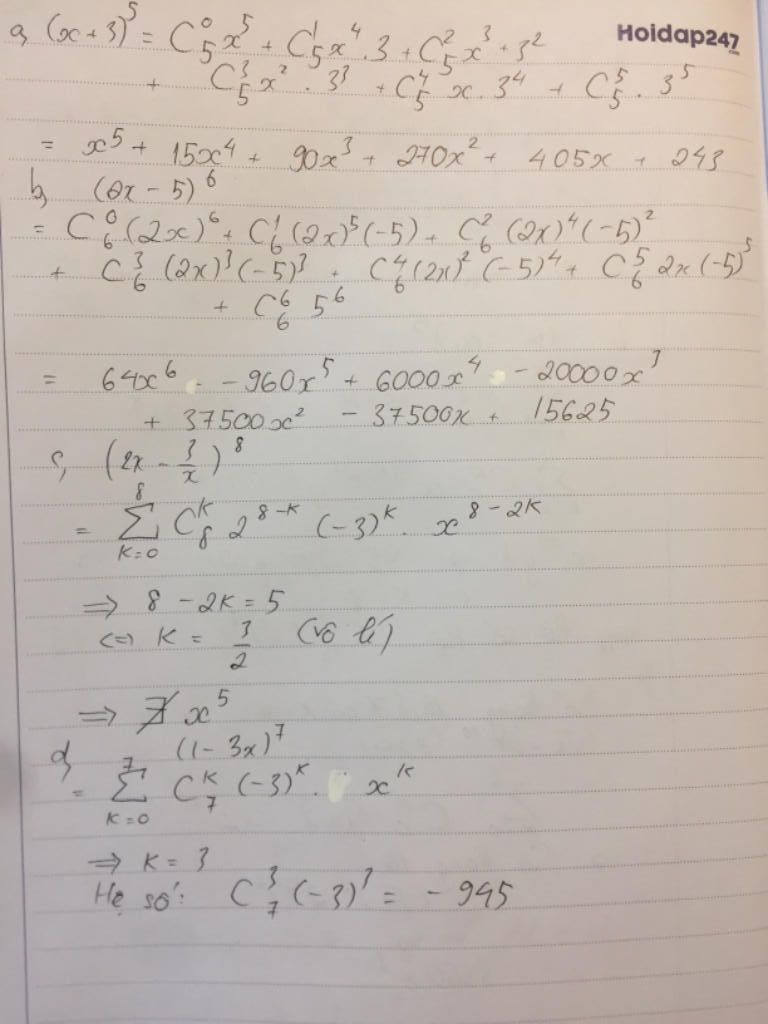 Hoidap247
a, (x + 3)⁵ = C₅⁰x⁵ + C₅¹x⁴.3 + C₅²x³ + 3²
+ C₅³x² . 3³ + C₅⁴ x. 3⁴ + C₅⁵ . 3⁵
= x⁵ + 15x⁴ + 90x³ + 270x² + 405x + 243
b, (2x - 5)⁶
= C₆⁰(2x)⁶ + C₆¹(2x)⁵(-5) + C₆²(2x)⁴(-5)²
+ C₆³(2x)³(-5)³ + C₆⁴(2x)²(-5)⁴ + C₆⁵ 2x(-5)⁵
+ C₆⁶ 5⁶
= 64x⁶ - 960x⁵ + 6000x⁴ - 20000x³
+ 37500x² - 37500x + 15625
c, (2x - 3/x)⁸
= ∑ₖ₌₀⁸ C₈ᵏ 2⁸⁻ᵏ (-3)ᵏ. x⁸⁻²ᵏ
=> 8 - 2k = 5
<=> k = 3/2 (vô lí)
=> ∄ x⁵
d, (1 - 3x)⁷
= ∑ₖ₌₀⁷ C₇ᵏ (-3)ᵏ. xᵏ
=> k = 3
Hệ số: C₇³ (-3)³ = - 945